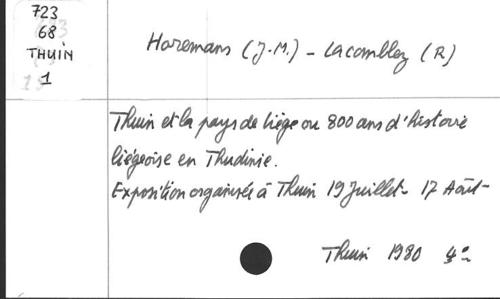 723
68
THUIN
1
Horemans (J.M.) - Lacomblez (R)
Thuin et la pays de Liège ou 800 ans d'histoire
liégeoise en Thudinie.
Exposition organisée à Thuin 19 Juillet - 17 Août -
Thuin 1980 4°